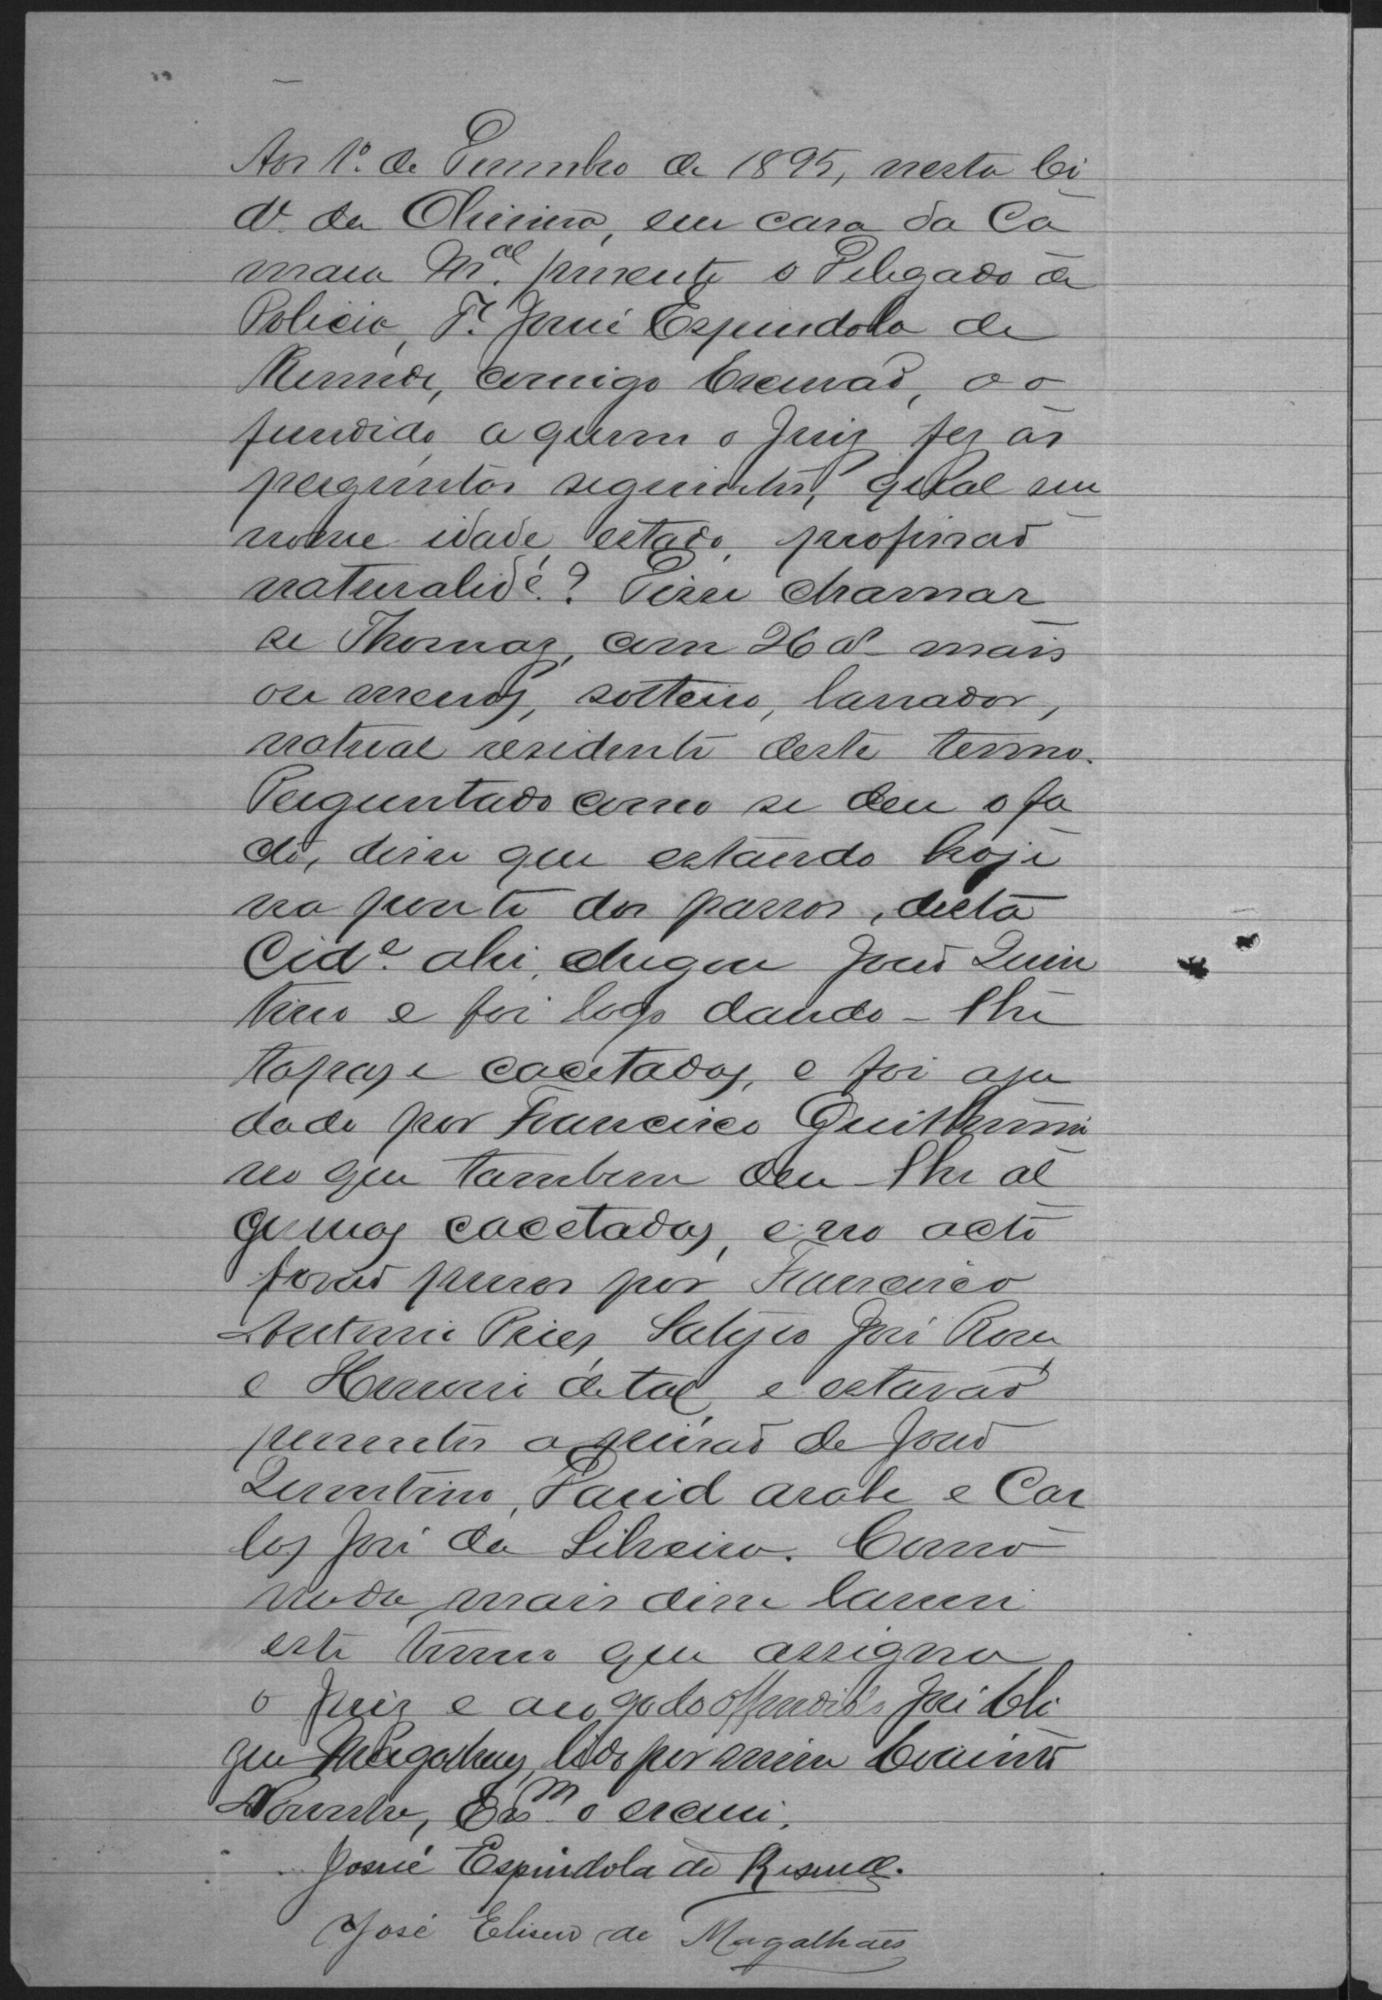 Aos 1º. de Dezembro de 1895, nesta Ci
dᵉ. de Oliveira, em casa da Ca
mara Mᵃˡ. presente o Delegado de
Policia, Tᵉ. Josué Espindola de
Resende, comigo Escrivaõ, o o
fendido, a quem o Juiz fez as
perguntas seguintes, qual seu
nome idade, estado, profissaõ
naturalidᵉ.? Disse chamar
se Thomaz, com 26 aˢ mais
ou menos, solteiro, lavrador,
natural residente deste termo.
Perguntado como se deu o fa
cto, disse que estando hoje
na ponte dos passos, desta
Cidᵉ. ahi, chegou Joaõ Quin
tino e foi logo dando-lhe
tapas e cacetadas, e foi aju
dado por Francisco Guilhermi
no que tambem deu-lhe al
gumas cacetadas, e no acto
foraõ presos por Francisco
Antonio Pires, José Rosa
e de tal, e estavaõ
presentes a prisaõ de Joaõ
Quintino, David arabe e Car
los José da Silveira. Como
nada mais disse lavrei
este termo que assigna
o Juiz e a rogo do offendido José Eli
zeu Magalhaes, lido por mim
Noronha, Esᵐ o escrevi.
Josué Espindola de Resende.
José Eliseu de Magalhães